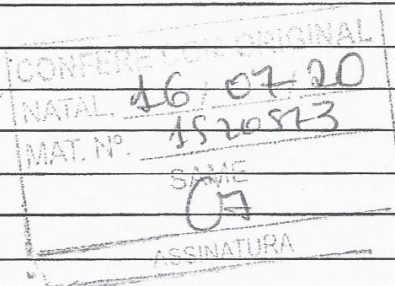 CONFERE COM ORIGINAL
NATAL, 16 / 07 20
MAT. Nº. 1520573
SAME
ASSINATURA